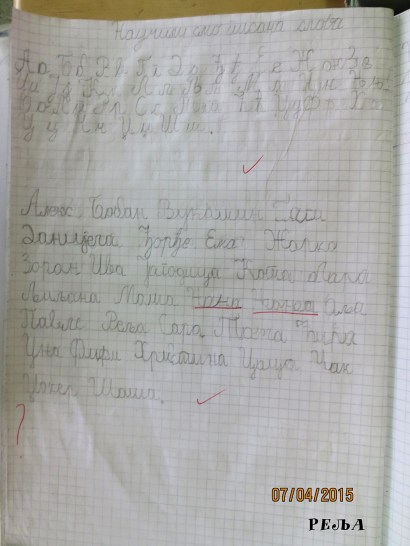 Научили смо писана слова
Аа Бб Вв Гг Дд Ђђ Ее Жж Зз
Ии Јј Кк Лл Љљ Мм Нн Њњ
Оо Пп Рр Сс Тт Ћћ Уу Фф Хх
Цц Чч Џџ Шш.
Алекс Бобан Вукашин Гага
Данијела Ђорђе Ема Жарко
Зоран Ива Јагодица Коста Лара
Љиљана Маша Нана Оља
Павле Реља Сара Ћира
Уна Фифи Христина Цеца Чак
Џокер Шаша.
07/04/2015
РЕЉА